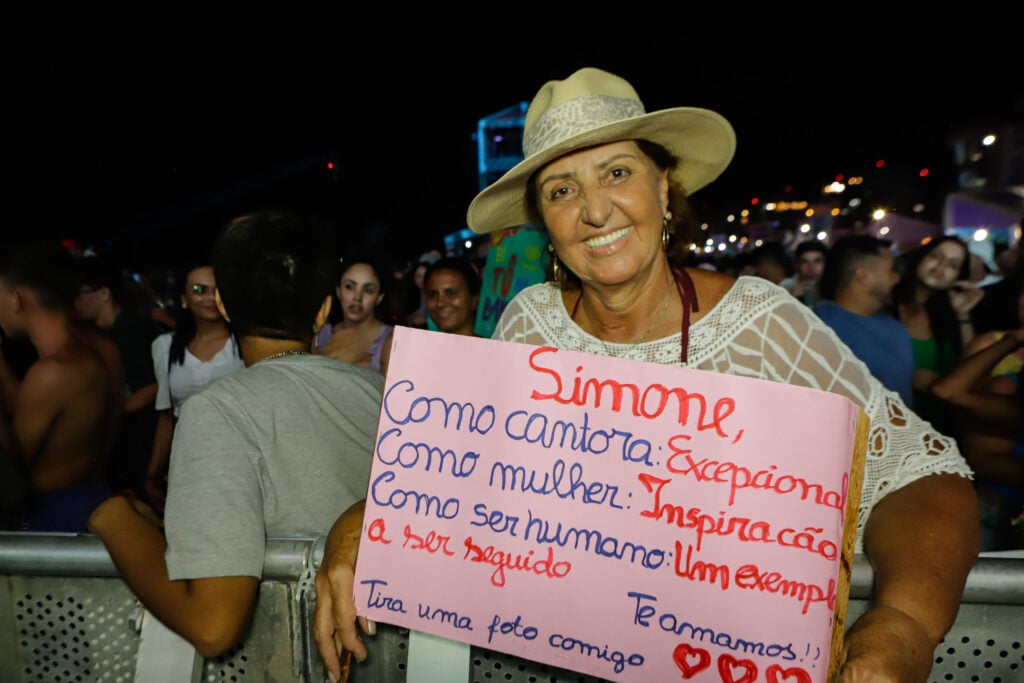 Simone,
Como cantora: Excepcional
Como mulher: Inspiracão
Como ser humano: Um exemplo
a ser seguido
Te amamos!!
Tira uma foto comigo
TÔ